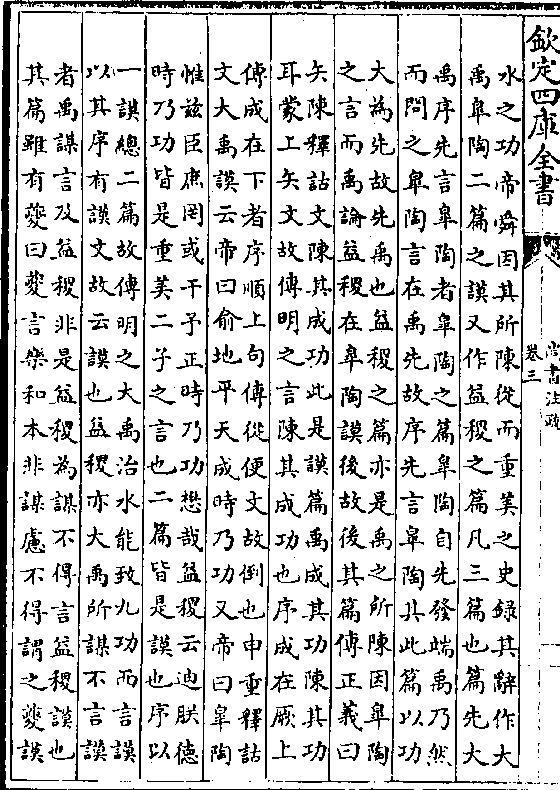 欽定四庫全書
尚書注疏
卷三
水之功帝舜因其所陳從而重美之史錄其辭作大
禹皐陶二篇之謨又作益稷之篇凡三篇也篇先大
禹序先言皐陶者皐陶之篇皐陶自先發端禹乃然
而問之皐陶言在禹先故序先言皐陶其此篇以功
大為先故先禹也益稷之篇亦是禹之所陳因皐陶
之言而禹論益稷在皐陶謨後故後其篇傳正義曰
矢陳釋詁文陳其成功此是謨篇禹成其功陳其功
耳蒙上矢文故傳明之言陳其成功也序成在厥上
傳成在下者序順上句傳從便文故倒也申重釋詁
文大禹謨云帝曰俞地平天成時乃功又帝曰皐陶
惟兹臣庶罔或干予正時乃功懋哉益稷云迪朕德
時乃功皆是重美二子之言也二篇皆是謨也序以
一謨總二篇故傳明之大禹治水能致九功而言謨
以其序有謨文故云謨也益稷亦大禹所謀不言謨
者禹謀言及益稷非是益稷為謀不得言益稷謨也
其篇雖有夔曰夔言樂和本非謀慮不得謂之夔謨